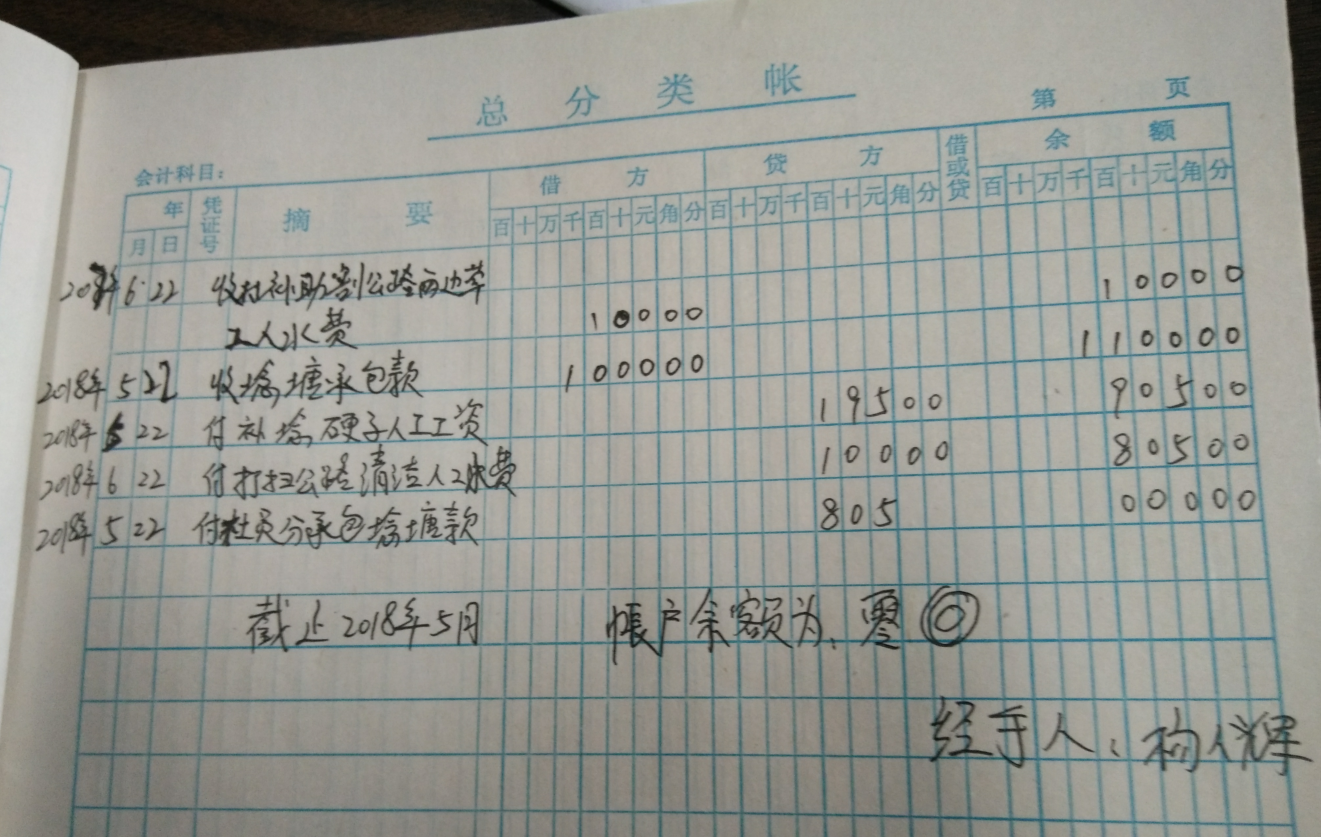 总分类帐
第 页
会计科目:
年 凭证号 摘要 借方 贷方 借或贷 余额
月 日 百十万千百十元角分 百十万千百十元角分 百十万千百十元角分
6 22 收社补助割公路两边草 10000
工人水费 10000
2018年 5 22 收塆塘承包款 100000 110000
2018年 5 22 付补塆硬子人工工资 19500 90500
2018年 6 22 付打扫公路清洁人工水费 10000 80500
2018年 5 22 付社员分承包塆塘款 805 00000
截止2018年5月 帐户余额为、零
经手人: